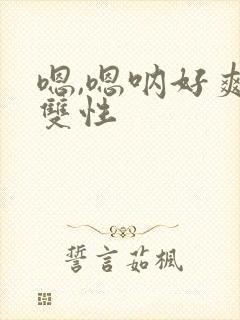 嗯,嗯呐好爽
雙性
誓言茹楓